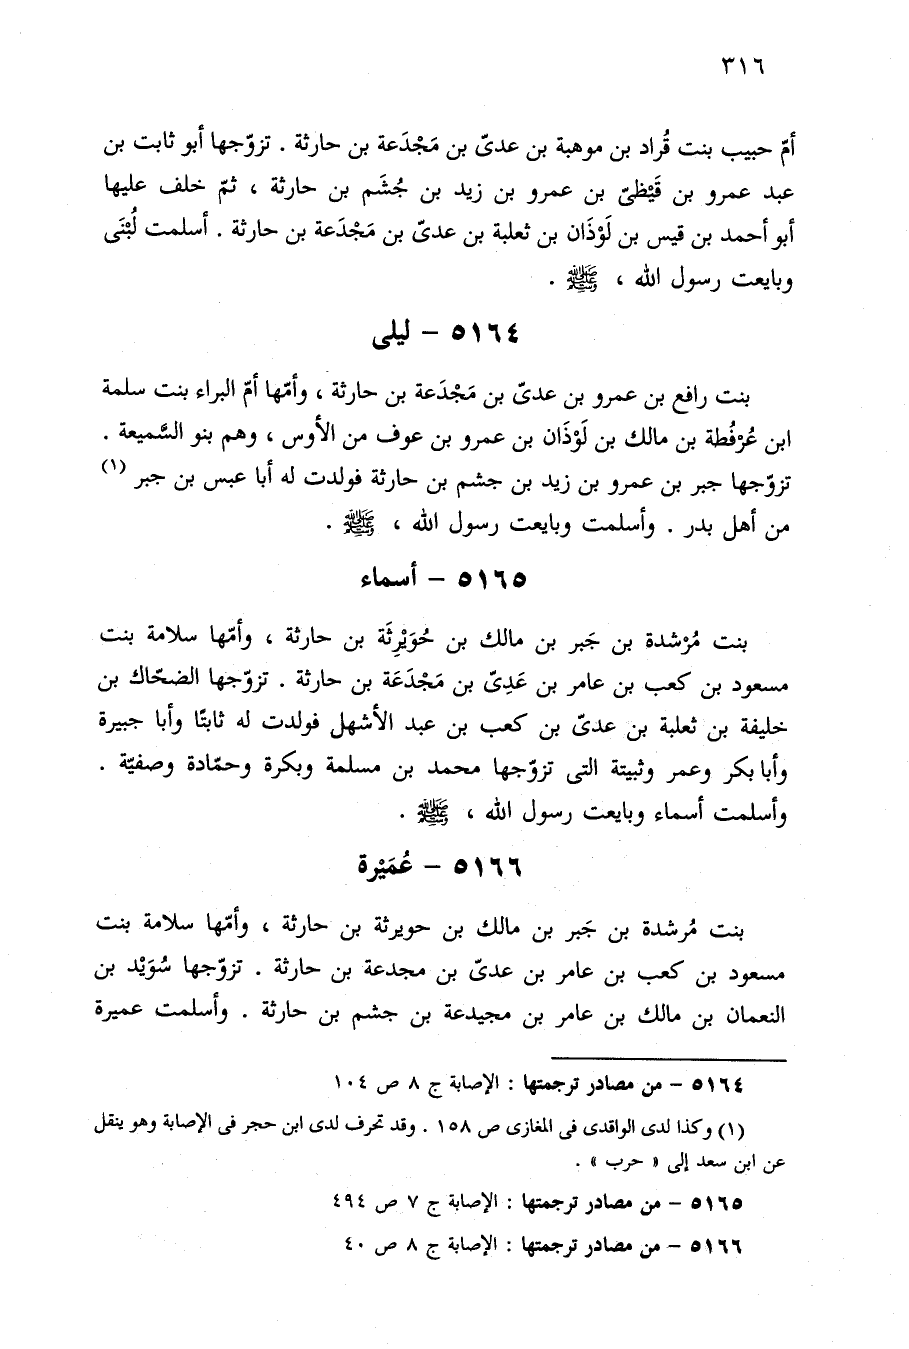 ٣١٦
أمّ حبيب بنت قُراد بن موهبة بن عدىّ بن مَجْدَعة بن حارثة . تزوّجها أبو ثابت بن
عبد عمرو بن قَيْظىّ بن عمرو بن زيد بن جُشَم بن حارثة ، ثمّ خلف عليها
أبو أحمد بن قيس بن لَوْذَان بن ثعلبة بن عدىّ بن مَجْدَعة بن حارثة . أسلمت لُبْنَى
وبايعت رسول الله ، ﷺ .
٥١٦٤ – ليلى
بنت رافع بن عمرو بن عدىّ بن مَجْدَعة بن حارثة ، وأمّها أمّ البراء بنت سلمة
ابن عُرْفُطة بن مالك بن لَوْذَان بن عمرو بن عوف من الأوس ، وهم بنو السَّميعة .
تزوّجها جبر بن عمرو بن زيد بن جشم بن حارثة فولدت له أبا عبس بن جبر (١)
من أهل بدر . وأسلمت وبايعت رسول الله ، ﷺ .
٥١٦٥ – أسماء
بنت مُرْشدة بن جَبر بن مالك بن حُوَيْرِثَة بن حارثة ، وأمّها سلامة بنت
مسعود بن كعب بن عامر بن عَدِىّ بن مَجْدَعَة بن حارثة . تزوّجها الضحّاك بن
خليفة بن ثعلبة بن عدىّ بن كعب بن عبد الأشهل فولدت له ثابتًا وأبا جبيرة
وأبا بكر وعمر وثبيتة التى تزوّجها محمد بن مسلمة وبكرة وحمّادة وصفيّة .
وأسلمت أسماء وبايعت رسول الله ، ﷺ .
٥١٦٦ – عُمَيْرة
بنت مُرشدة بن جَبر بن مالك بن حويرثة بن حارثة ، وأمّها سلامة بنت
مسعود بن كعب بن عامر بن عدىّ بن مجدعة بن حارثة . تزوّجها سُوَيْد بن
النعمان بن مالك بن عامر بن مجيدعة بن جشم بن حارثة . وأسلمت عميرة
٥١٦٤ – من مصادر ترجمتها : الإصابة ج ٨ ص ١٠٤
(١) وكذا لدى الواقدى فى المغازى ص ١٥٨ . وقد تحرف لدى ابن حجر فى الإصابة وهو ينقل
عن ابن سعد إلى « حرب » .
٥١٦٥ – من مصادر ترجمتها : الإصابة ج ٧ ص ٤٩٤
٥١٦٦ – من مصادر ترجمتها : الإصابة ج ٨ ص ٤٠